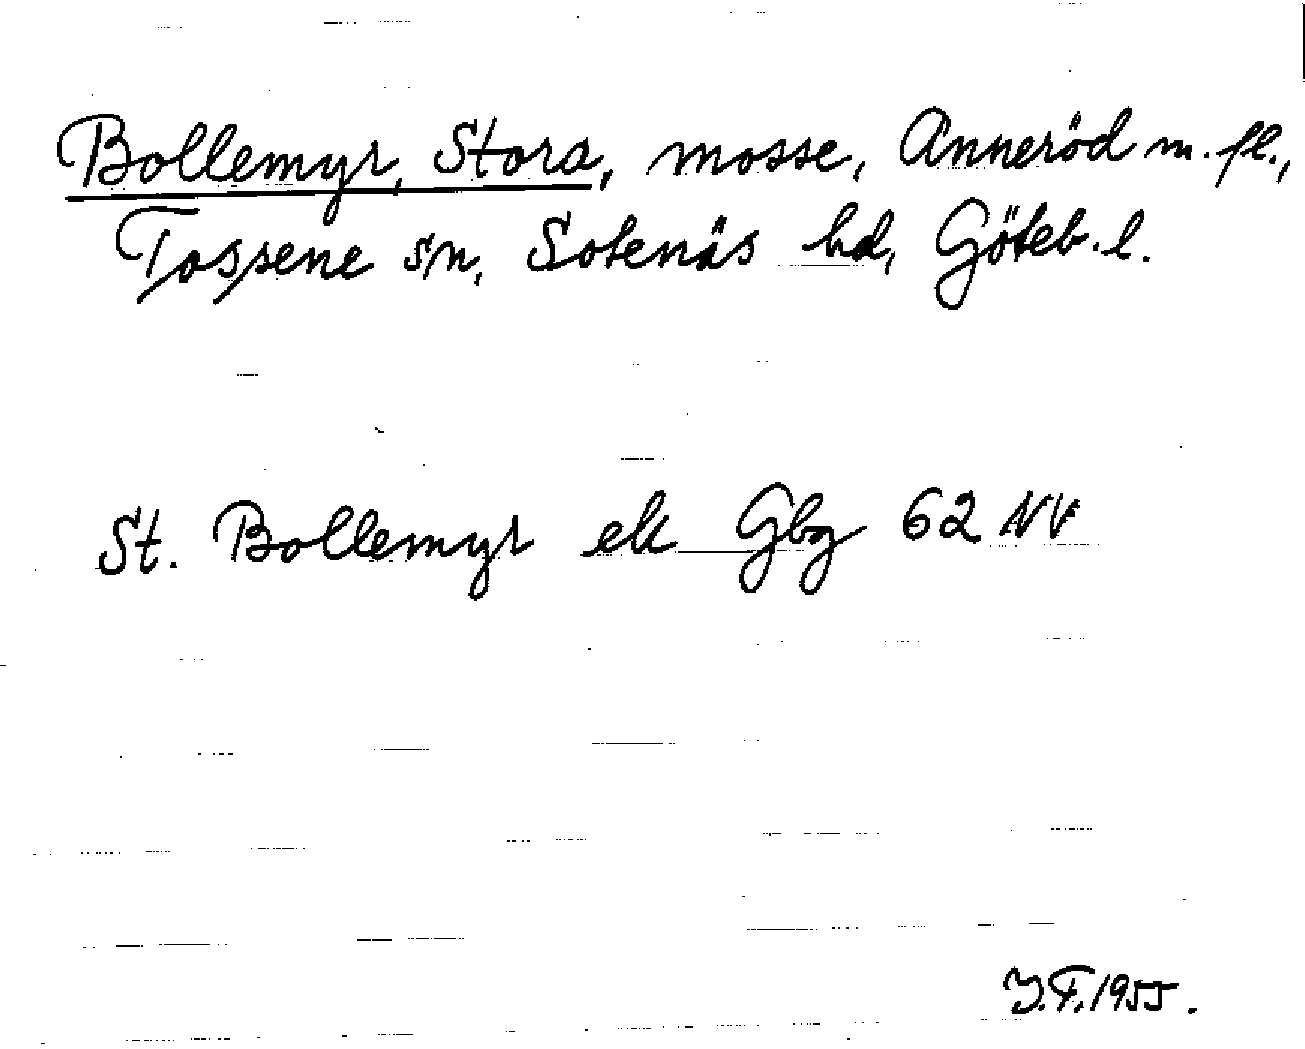 Bollemyr, Stora, mosse, Anneröd m. fl.,
Tossene sn, Sotenäs hd, Göteb. l.
St. Bollemyr ek Gbg 62 NV
J.F. 1955.